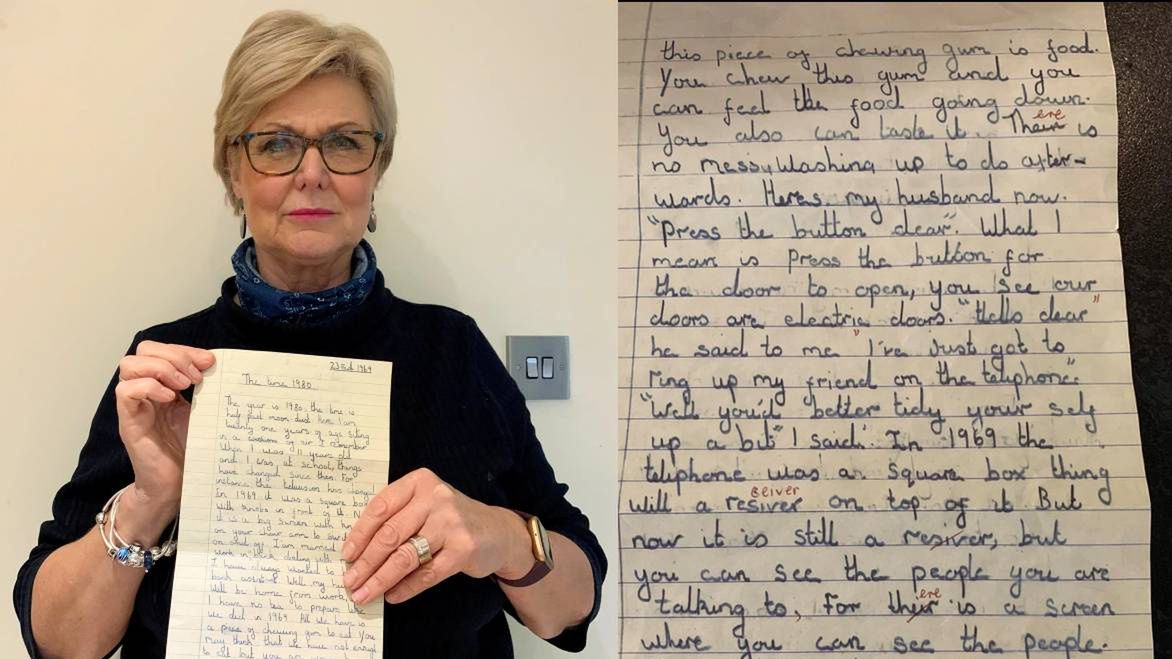 23rd 1969
The time 1980
The year is 1980, the time is
half past four. Here I am
twenty one years of age siting
in a cushion of air. I remember
When I was 11 years old
and I was at school, things
have changed since then. For
instance the television has changed
In 1969 it was a square box
with in front of it. N
it is a big screen with kno
on your chair arm to
on and off. I am married
work in a bank dealing with
I have always wanted to
bank assistant. Well my hus
will be home from work,
I have no tea to prepare like
we did in 1969. All we have is
a piece of chewing gum to eat. You
may think that we have not enough
to eat but you
this piece of chewing gum is food.
You chew this gum and you
can feel the food going down.
You also can taste it. Their ere is
no messy washing up to do after-
wards. Heres my husband now.
"Press the button dear". What I
mean is press the button for
the door to open, you see our
doors are electric doors. "Hello dear"
he said to me "I've Just got to
ring up my friend on the telephone."
"Well you'd better tidy your self
up a bit" I said. In 1969 the
telephone was a square box thing
will a resiver ceiver on top of it But
now it is still a resiver, but
you can see the people you are
talking to, For their ere is a screen
where you can see the people.